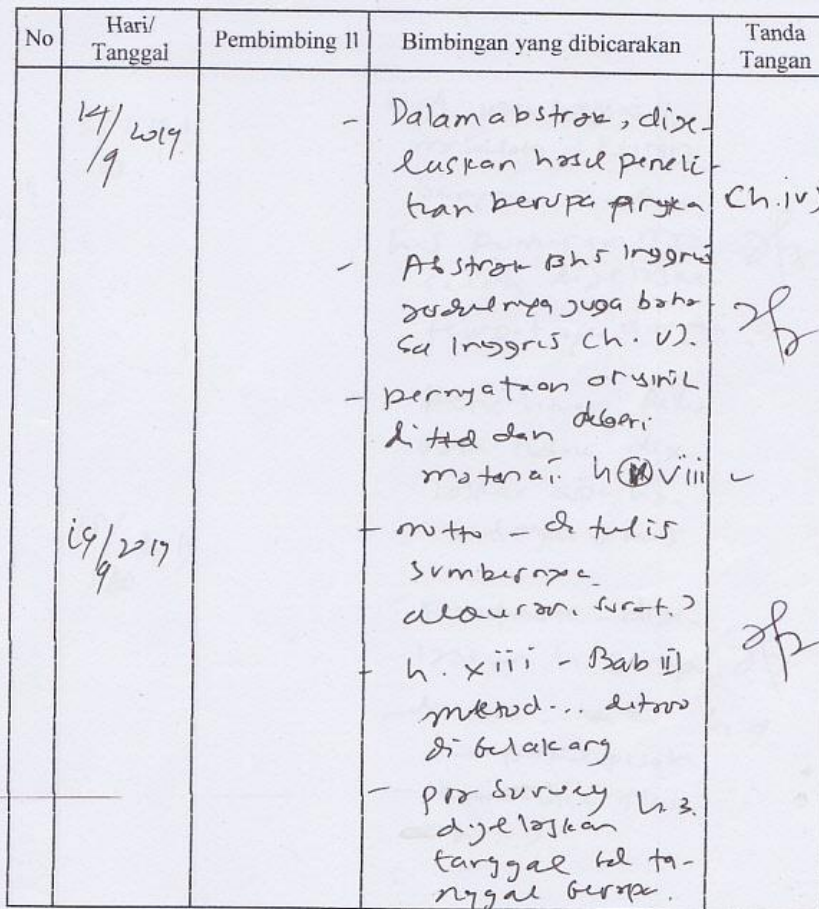 No
Hari/
Tanggal
Pembimbing 11
Bimbingan yang dibicarakan
Tanda
Tangan
14/9 2019
- Dalam abstrak, dije-
laskan hasil peneli-
tian berupa angka (h.iv)
- Abstrak Bhs Inggris
judulnya juga baha-
sa Inggris (h. v).
- pernyataan orysinil
di ttd dan diberi
materai. h viii
19/9 2019
- motto - di tulis
sumbernya
alquran, surat.?
- h. xiii - Bab III
metod... ditaro
di belakang
- pra survey h 3.
dijelaskan
tanggal sd ta-
nggal berapa.